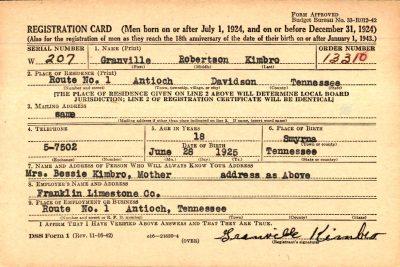 FORM APPROVED
Budget Bureau No. 33-R012-42
REGISTRATION CARD—(Men born on or after July 1, 1924, and on or before December 31, 1924)
(Also for the registration of men as they reach the 18th anniversary of the date of their birth on or after January 1, 1943.)
SERIAL NUMBER 1. NAME (Print) ORDER NUMBER
W 207 Granville Robertson Kimbro 13310
(First) (Middle) (Last)
2. PLACE OF RESIDENCE (Print)
Route No. 1 Antioch Davidson Tennessee
(Number and street) (Town, township, village, or city) (County) (State)
[THE PLACE OF RESIDENCE GIVEN ON LINE 2 ABOVE WILL DETERMINE LOCAL BOARD
JURISDICTION; LINE 2 OF REGISTRATION CERTIFICATE WILL BE IDENTICAL]
3. MAILING ADDRESS
same
[Mailing address if other than place indicated on line 2. If same, insert word same]
4. TELEPHONE 5. AGE IN YEARS 6. PLACE OF BIRTH
18 Smyrna
DATE OF BIRTH (Town or county)
5-7502 June 28 1925 Tennessee
(Exchange) (Number) (Mo.) (Day) (Yr.) (State or country)
7. NAME AND ADDRESS OF PERSON WHO WILL ALWAYS KNOW YOUR ADDRESS
Mrs. Bessie Kimbro, Mother address as Above
8. EMPLOYER'S NAME AND ADDRESS
Franklin Limestone Co.
9. PLACE OF EMPLOYMENT OR BUSINESS
Route No. 1 Antioch, Tennessee
(Number and street or R. F. D. number) (Town) (County) (State)
I AFFIRM THAT I HAVE VERIFIED ABOVE ANSWERS AND THAT THEY ARE TRUE.
DSS Form 1 (Rev. 11-16-42) (OVER) Granville Kimbro
(Registrant's signature)